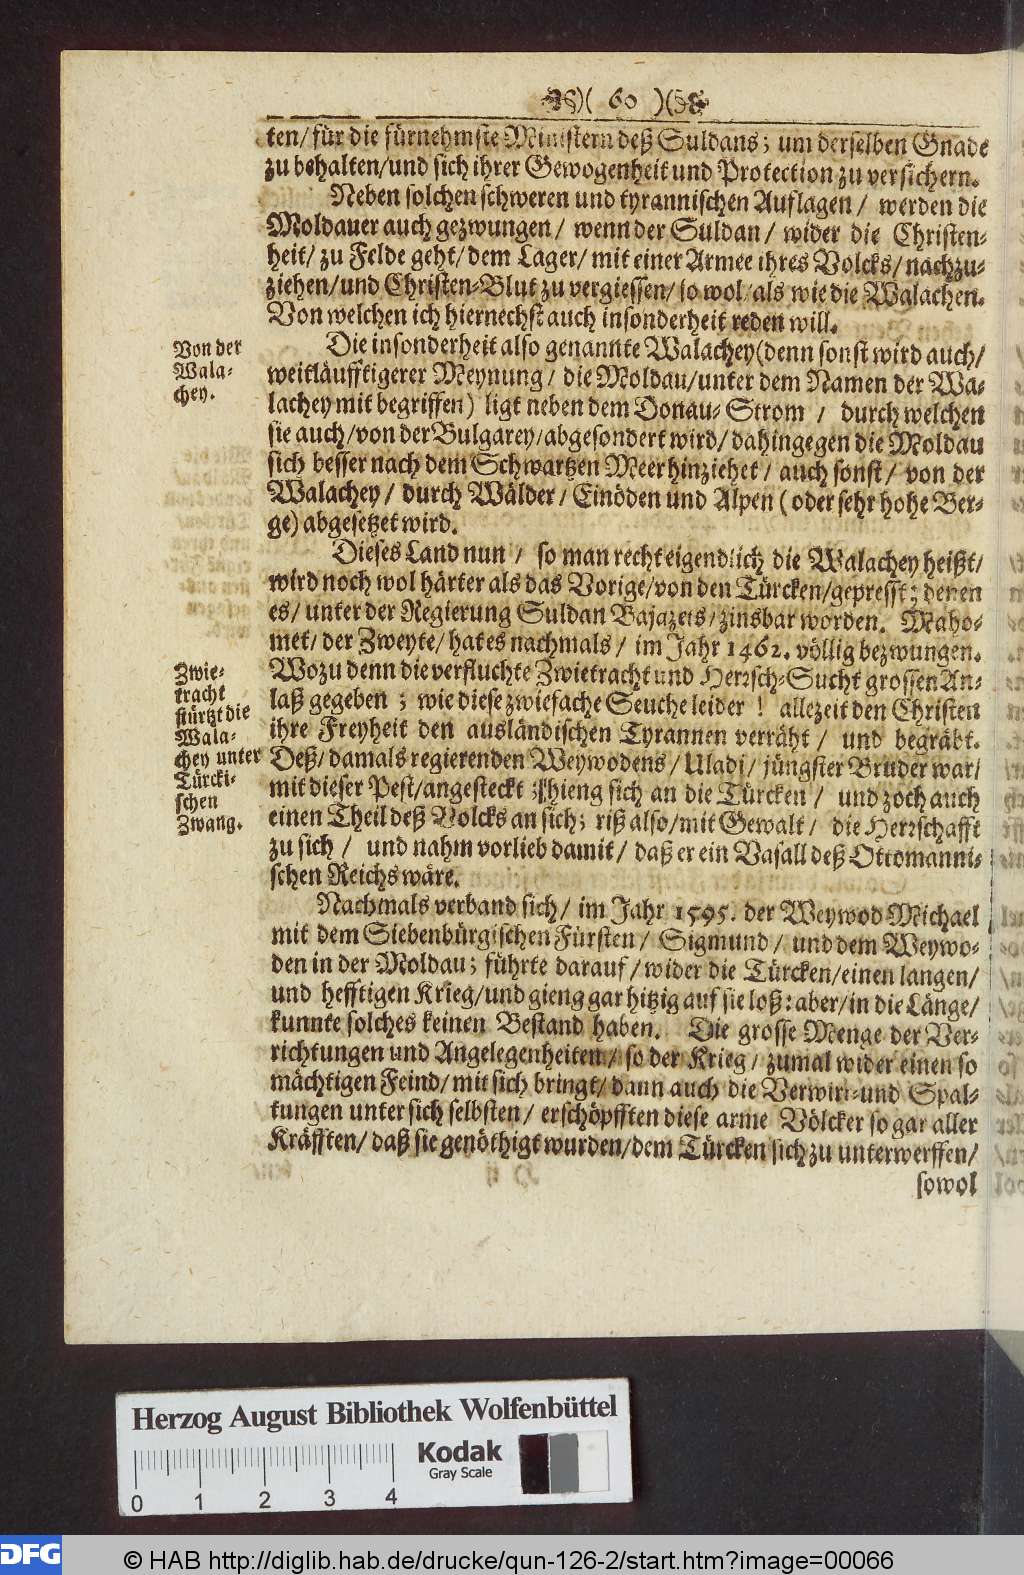 )( 60 )(
ten/ für die fürnehmste Ministern deß Suldans; um derselben Gnade
zu behalten/und sich ihrer Gewogenheit und Protection zu versichern.
Neben solchen schweren und tyrannischen Auflagen / werden die
Moldauer auch gezwungen / wenn der Suldan / wider die Christen-
heit/ zu Felde geht/ dem Lager/ mit einer Armee ihres Volcks/ nachzu-
ziehen/und Christen-Blut zu vergiessen/ so wol/als wie die Walachen.
Von welchen ich hiernechst auch insonderheit reden will.
Von der
Wala-
chey.
Die insonderheit also genannte Walachey (denn sonst wird auch/
weitläufftigerer Meynung / die Moldau/unter dem Namen der Wa-
lachey mit begriffen) ligt neben dem Donau-Strom / durch welchen
sie auch/von der Bulgarey/abgesondert wird/ dahingegen die Moldau
sich besser nach dem Schwartzen Meer hinziehet / auch sonst / von der
Walachey / durch Wälder / Einöden und Alpen ( oder sehr hohe Ber-
ge) abgesetzet wird.
Dieses Land nun / so man recht eigendlich die Walachey heißt/
wird noch wol härter als das Vorige/von den Türcken/gepresst; denen
es/ unter der Regierung Suldan Bajazets/zinsbar worden. Maho-
met/ der Zweyte/ hat es nachmals / im Jahr 1462. völlig bezwungen.
Zwie-
tracht
stürtzt die
Wala-
chey unter
Türcki-
schen
Zwang.
Wozu denn die verfluchte Zwietracht und Herrsch-Sucht grossen An-
laß gegeben ; wie diese zwiefache Seuche leider ! allezeit den Christen
ihre Freyheit den ausländischen Tyrannen verräht / und begräbt.
Deß/ damals regierenden Weywodens / Uladi / jüngster Bruder war/
mit dieser Pest/angesteckt ; hieng sich an die Türcken / und zoch auch
einen Theil deß Volcks an sich; riß also/mit Gewalt / die Herrschafft
zu sich / und nahm vorlieb damit / daß er ein Vasall deß Ottomanni-
schen Reichs wäre.
Nachmals verband sich/ im Jahr 1595. der Weywod Michael
mit dem Siebenbürgischen Fürsten / Sigmund / und dem Weywo-
den in der Moldau; führte darauf / wider die Türcken/einen langen/
und hefftigen Krieg/und gieng gar hitzig auf sie loß: aber/in die Länge/
kunnte solches keinen Bestand haben. Die grosse Menge der Ver-
richtungen und Angelegenheiten / so der Krieg / zumal wider einen so
mächtigen Feind/ mit sich bringt/ dann auch die Verwirr-und Spal-
tungen unter sich selbsten / erschöpfften diese arme Völcker so gar aller
Kräfften/ daß sie genöthigt wurden/dem Türcken sich zu unterwerffen/
sowol
Herzog August Bibliothek Wolfenbüttel
Kodak
Gray Scale
0 1 2 3 4
DFG
© HAB http://diglib.hab.de/drucke/qun-126-2/start.htm?image=00066